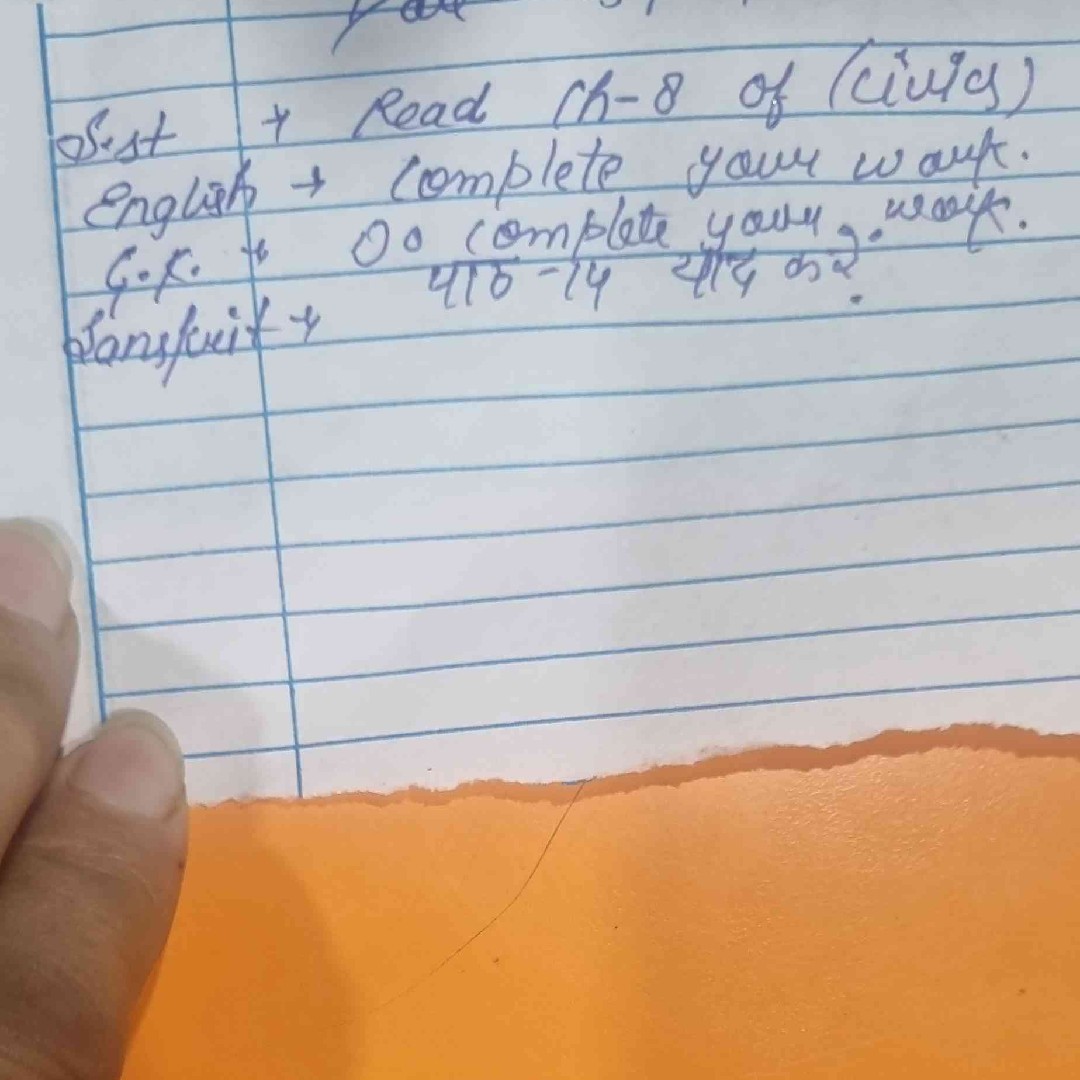 S.st → Read Ch-8 of (civics)
English → Complete your work.
G.K. → Do complete your work.
Sanskrit → पाठ -14 याद करे.